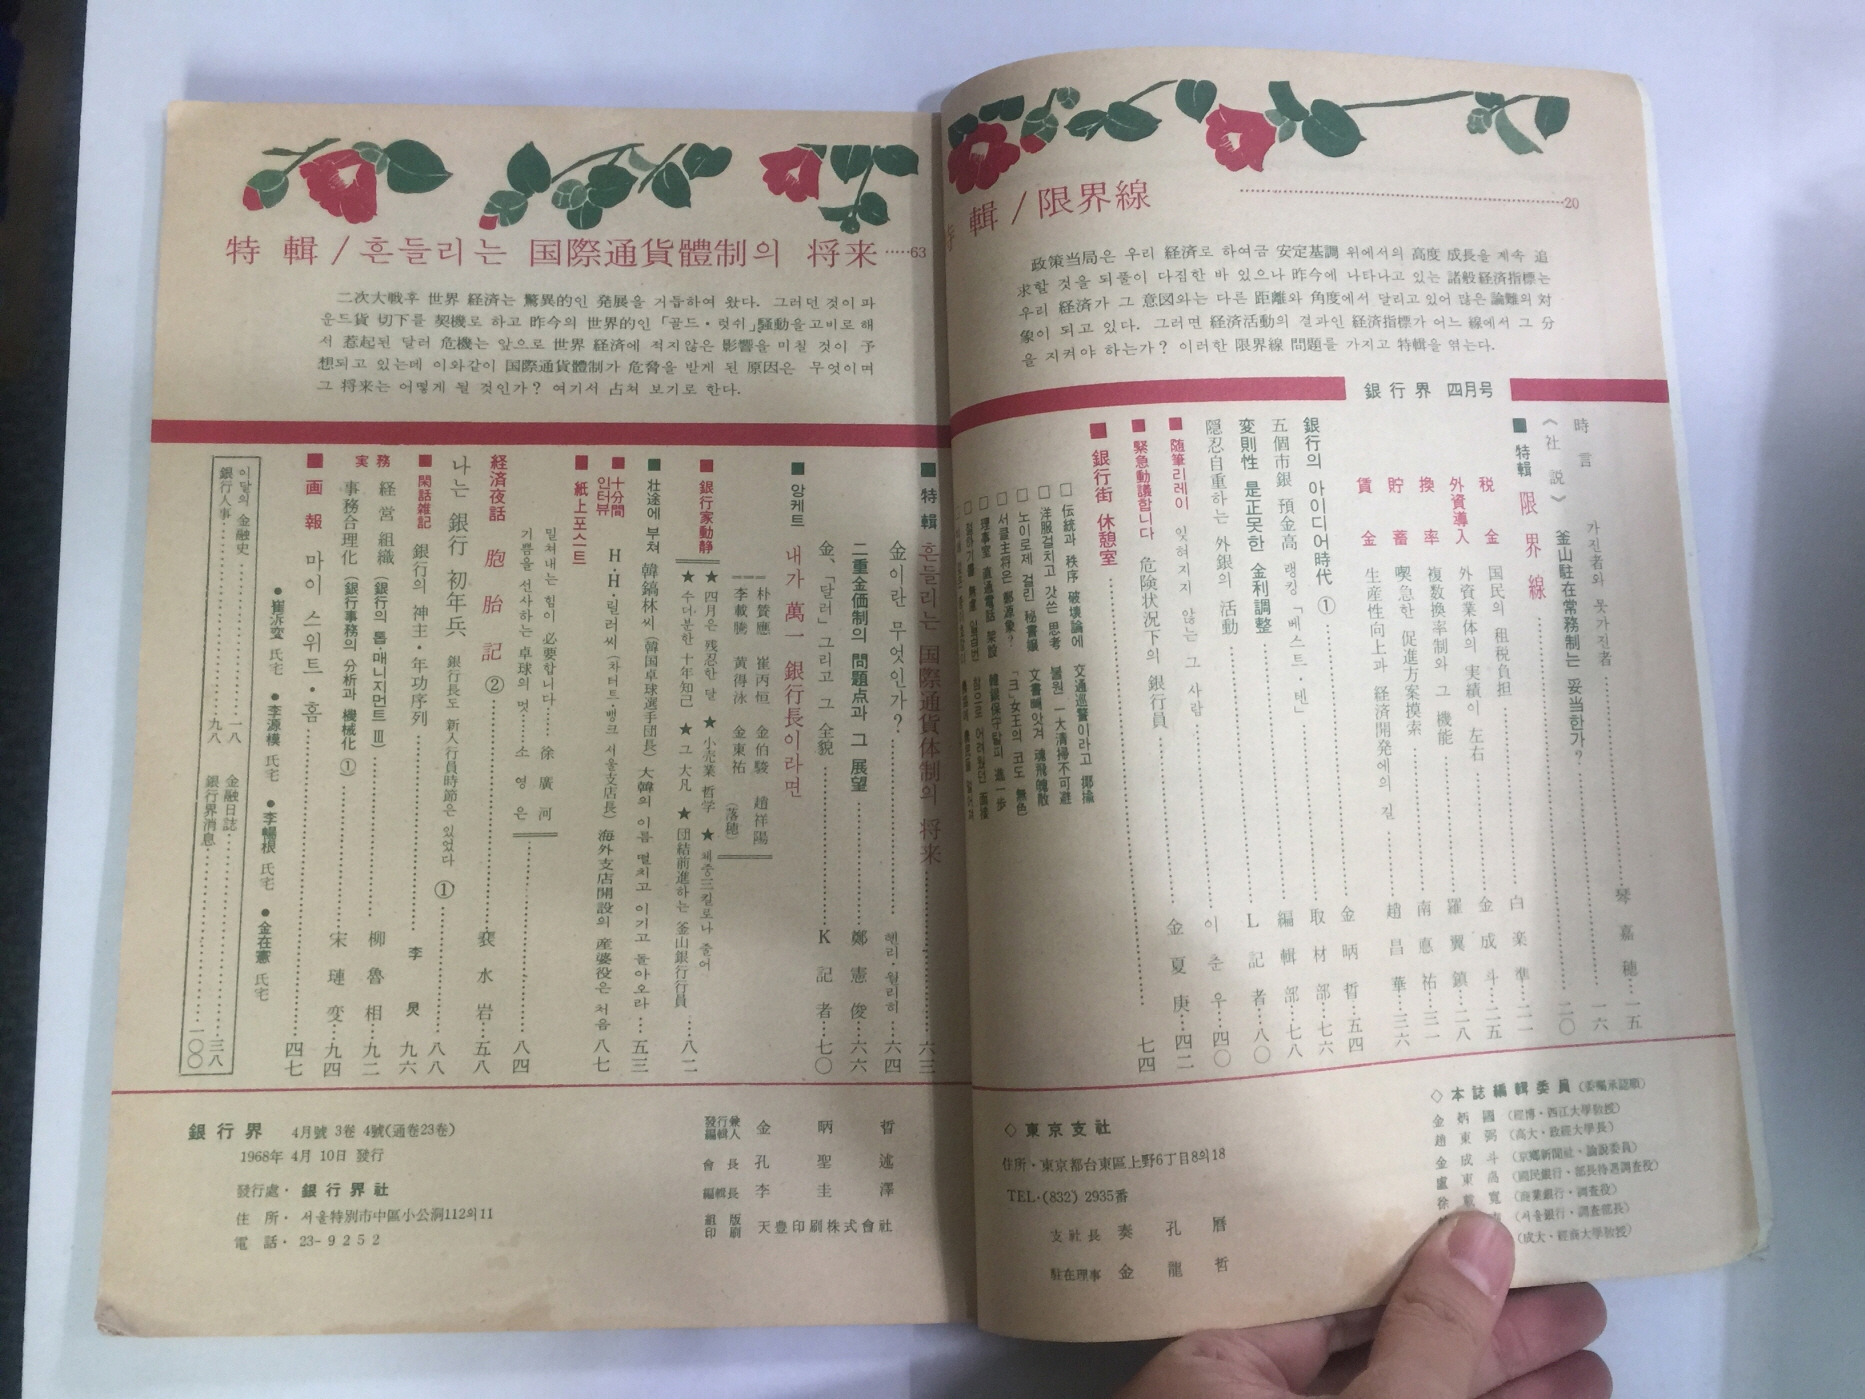 輯 / 限界線 20
政策当局은 우리 経済로 하여금 安定基調 위에서의 高度 成長을 계속 追
求할 것을 되풀이 다짐한 바 있으나 昨今에 나타나고 있는 諸般経済指標는
우리 経済가 그 意図와는 다른 距離와 角度에서 달리고 있어 많은 論難의 対
象이 되고 있다. 그러면 経済活動의 결과인 経済指標가 어느 線에서 그 分
을 지켜야 하는가? 이러한 限界線 問題를 가지고 特輯을 엮는다.
銀行界 四月号
時言 가진者와 못가진者 琴嘉穂 一五
《社説》 釜山駐在常務制는 妥当한가? 一六
■ 特輯 限界線 二〇
税金 国民의 租税負担 白楽準 二一
外資導入 外資業体의 実績이 左右 金成斗 二五
換率 複数換率制와 그 機能 羅翼鎮 二八
貯蓄 喫急한 促進方案摸索 南悳祐 三一
賃金 生産性向上과 経済開発에의 길 趙昌華 三六
銀行의 아이디어時代 ① 金昞哲 五四
五個市銀 預金高 랭킹「베스트・텐」 取材部 七六
変則性 是正못한 金利調整 編輯部 七八
隠忍自重하는 外銀의 活動 L記者 八〇
■ 随筆리레이 잊혀지지 않는 그 사람 이춘우 四〇
■ 緊急動議합니다 危険状況下의 銀行員 金夏庚 四二
■ 銀行街 休憩室 七四
□ 伝統과 秩序 破壊論에 交通巡警이라고 揶揄
□ 洋服걸치고 갓쓴 思考 불원 一大清掃不可避
□ 노이로제 걸린 秘書嬢 文書빼앗겨 魂飛魄散
□ 서클主将은 鄭源象? 「크」女王의 코도 無色
□ 理事室 直通電話 架設 韓銀保守탈피 進一步
◇ 東京支社
住所・東京都台東區上野6丁目8의18
TEL・(832) 2935番
支社長 秦孔暦
駐在理事 金龍哲
◇ 本誌編輯委員 (委囑承認順)
金炳國 (經博・西江大學敎授)
趙東弼 (高大・政經大學長)
金成斗 (京鄕新聞社・論說委員)
盧東高 (國民銀行・部長待遇調査役)
徐載寬 (商業銀行・調査役)
(서울銀行・調査部長)
(成大・經商大學敎授)
特輯 / 흔들리는 国際通貨體制의 将来 63
二次大戦後 世界 経済는 驚異的인 発展을 거듭하여 왔다. 그러던 것이 파
운드貨 切下를 契機로 하고 昨今의 世界的인「골드・럿쉬」騷動을 고비로 해
서 惹起된 달러 危機는 앞으로 世界 経済에 적지않은 影響을 미칠 것이 予
想되고 있는데 이와같이 国際通貨體制가 危脅을 받게 된 原因은 무엇이며
그 将来는 어떻게 될 것인가? 여기서 占쳐 보기로 한다.
■ 特輯 흔들리는 国際通貨体制의 将来 六三
金이란 무엇인가? 헨리・월리히 六四
二重金価制의 問題点과 그 展望 鄭憲俊 六六
金、「달러」그리고 그 全貌 K記者 七〇
■ 앙케트 내가 萬一 銀行長이라면
朴賛應 崔丙恒 金伯駿 趙祥陽
李載騰 黄得泳 金東祐 (落穂)
■ 銀行家動静 八二
★ 四月은 残忍한 달 ★ 小売業 哲学 ★ 체중三킬로나 줄어
★ 수다분한 十年知己 ★ 그 大凡 ★ 団結前進하는 釜山銀行行員
■ 壮途에 부쳐 韓鎬林씨 (韓国卓球選手団長) 大韓의 이름 떨치고 이기고 돌아오라 五三
■ 十分間인터뷰 H・H・릴러씨 (차터드・뱅크 서울支店長) 海外支店開設의 産婆役은 처음 八七
■ 紙上포스트 八四
밀쳐내는 힘이 必要합니다 徐廣河
기쁨을 선사하는 卓球의 멋 소영은
経済夜話 胞胎記 ② 裵水岩 五八
나는 銀行 初年兵 銀行長도 新入行員時節은 있었다 ① 八八
■ 閑話雑記 銀行의 神主・年功序列 李炅 九六
実務 経営組織 (銀行의 톱・매니지먼트 Ⅲ) 柳魯相 九二
事務合理化 (銀行事務의 分析과 機械化 ①) 宋璉変 九四
■ 画報 마이 스위트・홈 四七
● 崔泝変 氏宅 ● 李源模 氏宅 ● 李暢根 氏宅 ● 金在憲 氏宅
이달의 金融史 一八 金融日誌 三八
銀行人事 九八 銀行界消息 一〇〇
銀行界 4月號 3卷 4號(通卷23卷)
1968年 4月 10日 發行
發行處・銀行界社
住所・서울特別市中區小公洞112의11
電話・23-9252
發行兼編輯人 金昞哲
會長 孔聖述
編輯長 李圭澤
組版印刷 天豊印刷株式會社